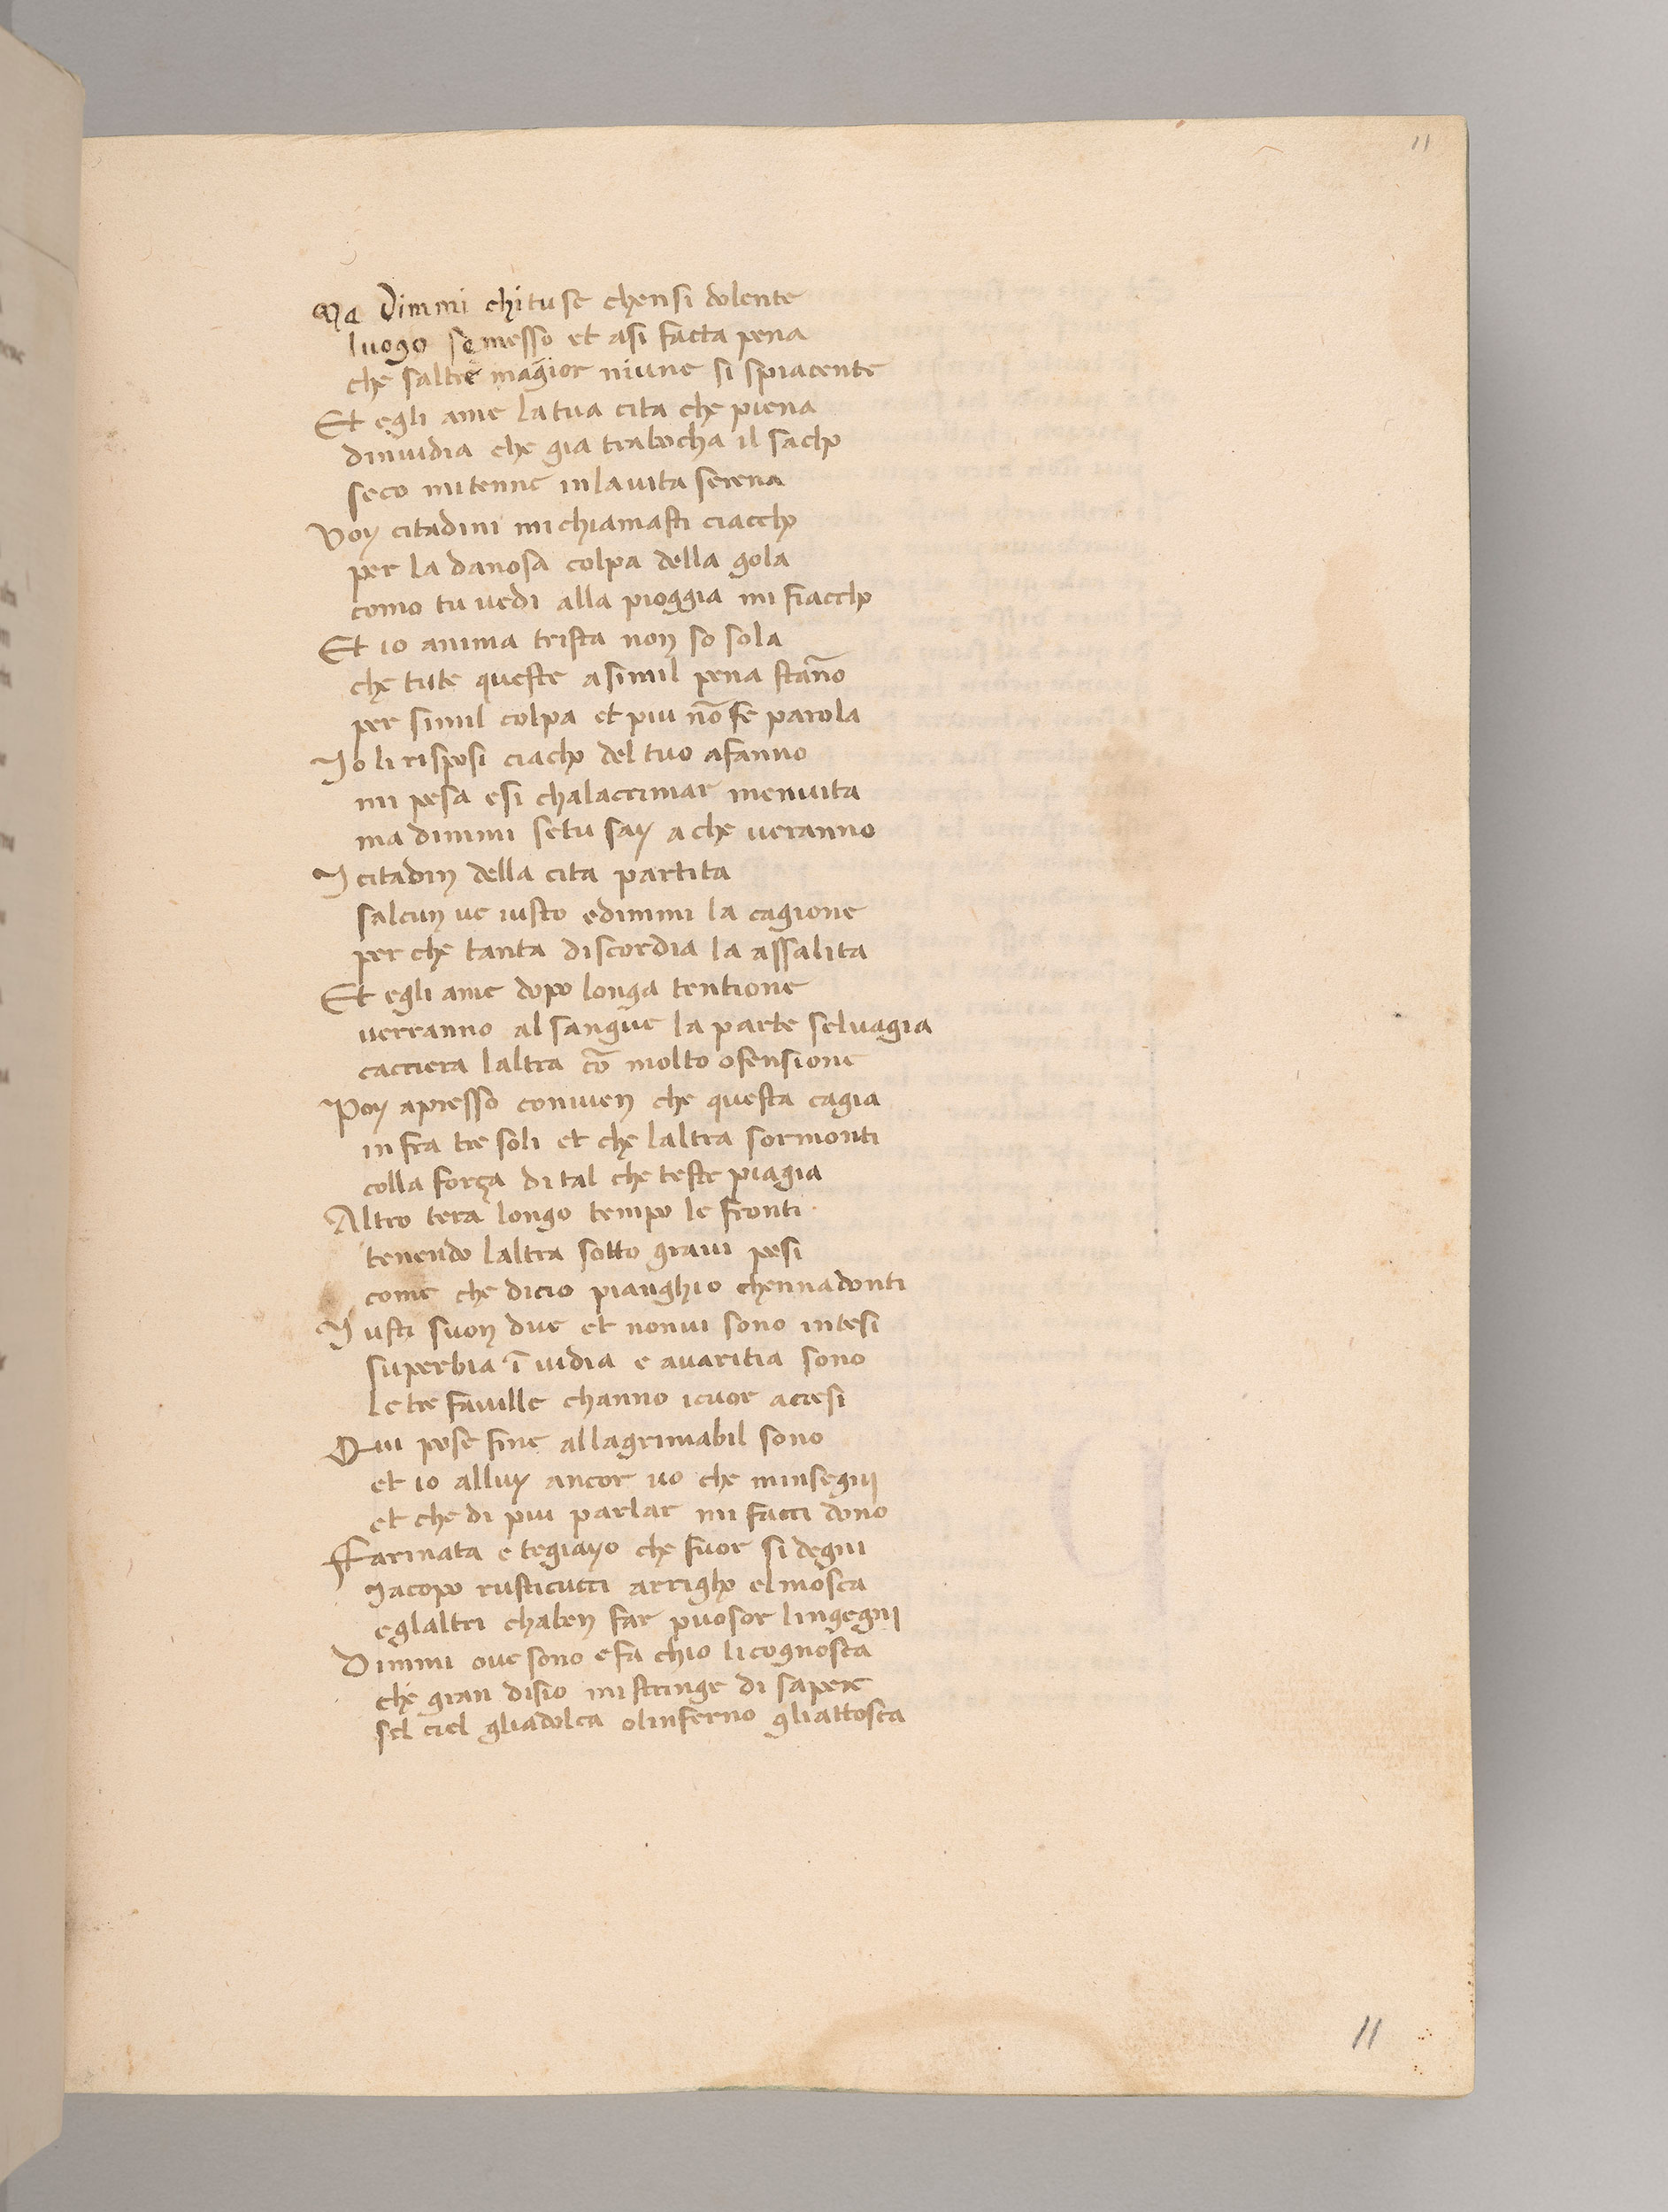 11
Ma Dimmi chi tu se chensi dolente
luogo se messo et asi facta pena
che saltre magior niune si spiacente
Et egli ame la tua cita che piena
dinuidia che gia trabocha il sacho
seco mi tenne in la uita serena
Voy citadini mi chiamasti ciaccho
per la danosa colpa della gola
como tu uedi alla pioggia mi fiaccho
Et io anima trista non so sola
che tute queste a simil pena stāno
per simil colpa et piu nō fe parola
Io li risposi ciacho del tuo afanno
mi pesa esi chalacrimar menuita
ma dimmi setu say a che ueranno
I citadin della cita partita
salcun ue iusto edimmi la cagione
per che tanta discordia la assalita
Et egli ame dopo longa tentione
uerranno al sangue la parte seluagia
cacciera laltra cō molto ofensione
Poy apresso conuien che questa cagia
infra tre soli et che laltra sormonti
colla força di tal che teste piagia
Altro tera longo tempo le fronti
tenendo laltra sotto graui pesi
come che dicio pianghio chennadonti
Iusti suon due et nonui sono intesi
superbia ī uidia e auaritia sono
le tre fauille channo icuor accesi
Qui pose fine al lagrimabil sono
et io alluy ancor uo che minsegnj
et che di piu parlar mi facci dono
Farinata e tegiayo che fuor si degni
Iacopo rusticucci arrigho el mosca
eglaltri chaben far puosor lingegnj
Dimmi oue sono efa chio li cognosca
che gran disio mi stringe di sapere
sel ciel gliadolca olinferno gliattosca
11